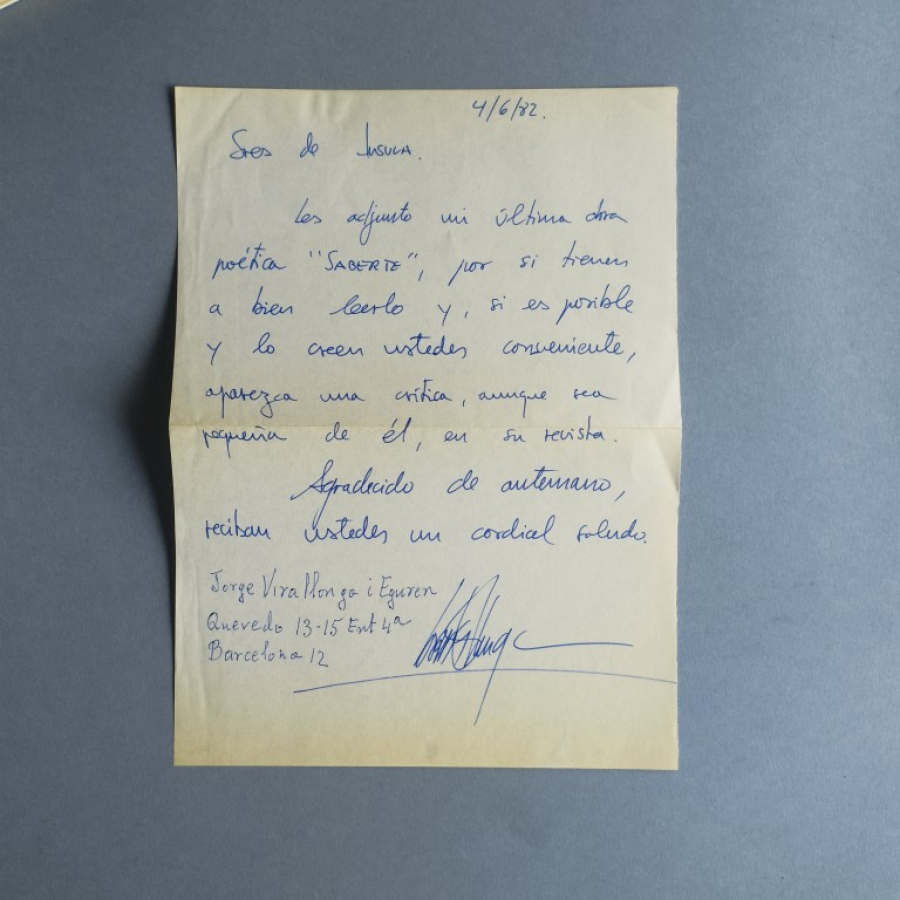 4/6/82.
Sres de Insula.
Les adjunto mi última obra
poética "SABERTE", por si tienen
a bien leerlo y, si es posible
y lo creen ustedes conveniente,
aparezca una crítica, aunque sea
pequeña de él, en su revista.
Agradecido de antemano,
reciban ustedes un cordial saludo.
Jorge Virallonga i Eguren
Quevedo 13-15 Ent 4ª
Barcelona 12